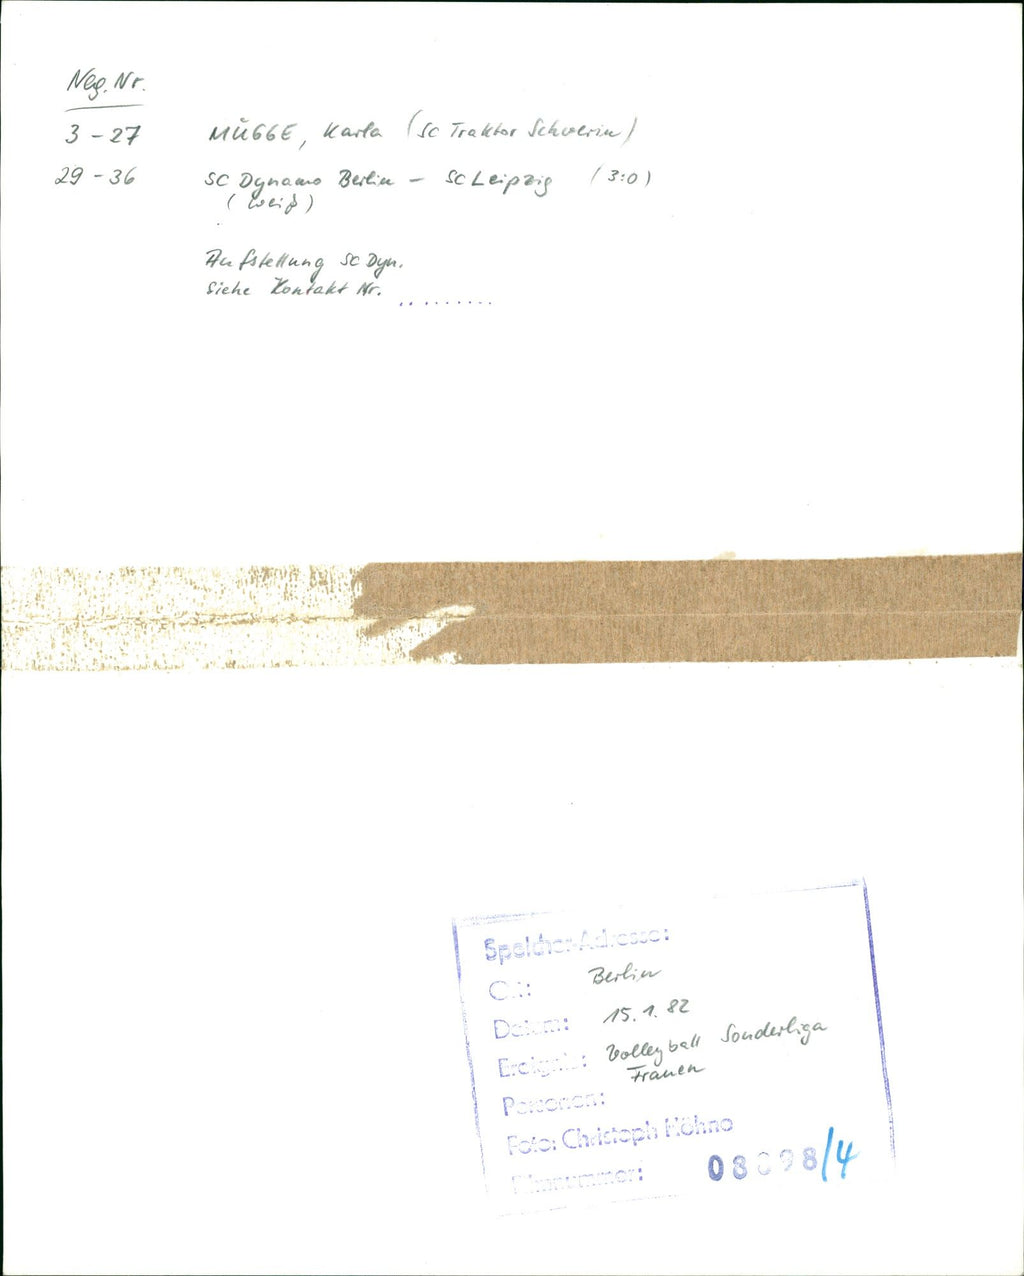 Neg. Nr.
3 - 27 MÜGGE, Karla (SC Traktor Schwerin)
29 - 36 SC Dynamo Berlin - SC Leipzig (3:0)
(weiß)
Aufstellung SC Dyn.
siehe Kontakt Nr. .........
Speicher-Adresse:
Ort: Berlin
Datum: 15.1.82
Ereignis: Volleyball Sonderliga
Frauen
Personen:
Foto: Christoph Höhne
Filmnummer: /4